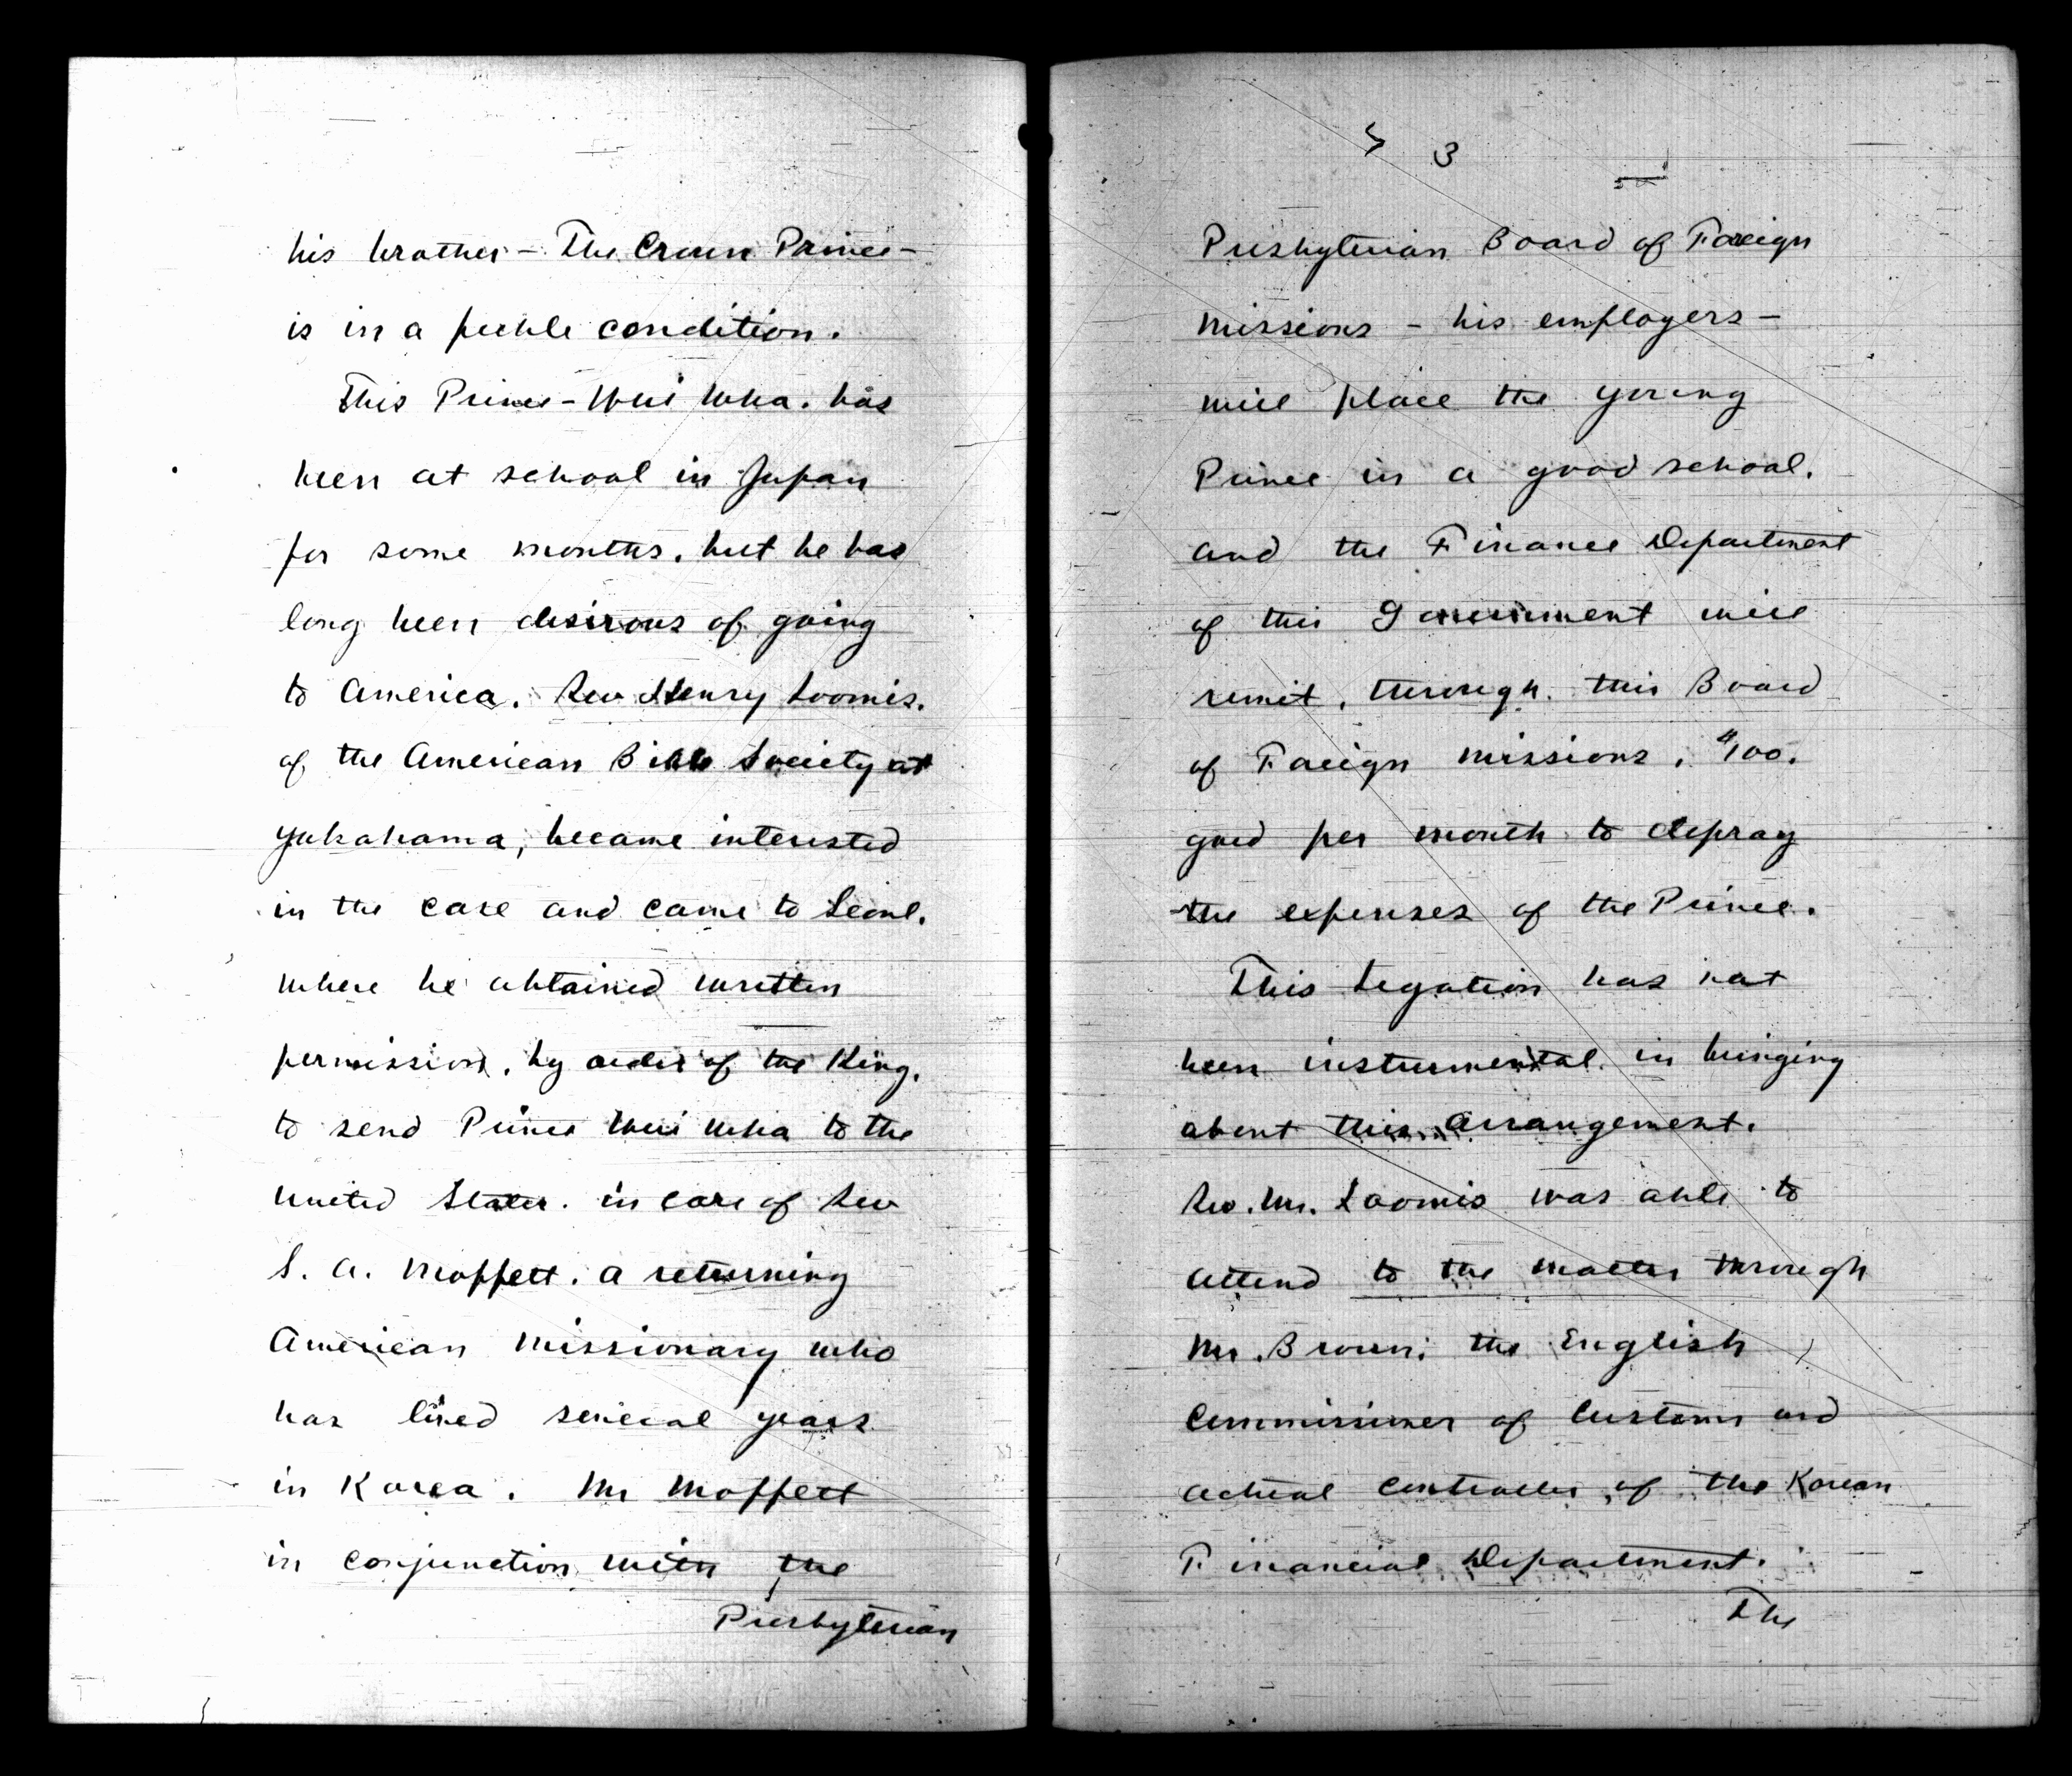 his brother – The Crown Prince –
is in a feeble condition.
This Prince – Wui Wha. has
been at school in Japan
for some months, but he has
long been desirous of going
to America. Rev Henry Loomis.
of the American Bible Society at
Yokohama, became interested
in the case and came to Seoul.
where he obtained written
permission, by order of the King.
to send Prince Wui Wha to the
United States. in care of Rev
S. A. Moffett. a returning
American missionary who
has lived several years
in Korea. Mr Moffett
in conjunction with the
Presbyterian
3
Presbyterian Board of Foreign
Missions – his employers –
will place the young
Prince in a good school.
and the Finance Department
of this Government will
remit, through this Board
of Foreign Missions, $100.
gold per month to defray
the expenses of the Prince.
This Legation has not
been instrumental in bringing
about this arrangement.
Rev. Mr. Loomis was able to
attend to the matter through
Mr. Brown; the English
Commissioner of Customs and
actual controller of the Korean
Financial Department.
The